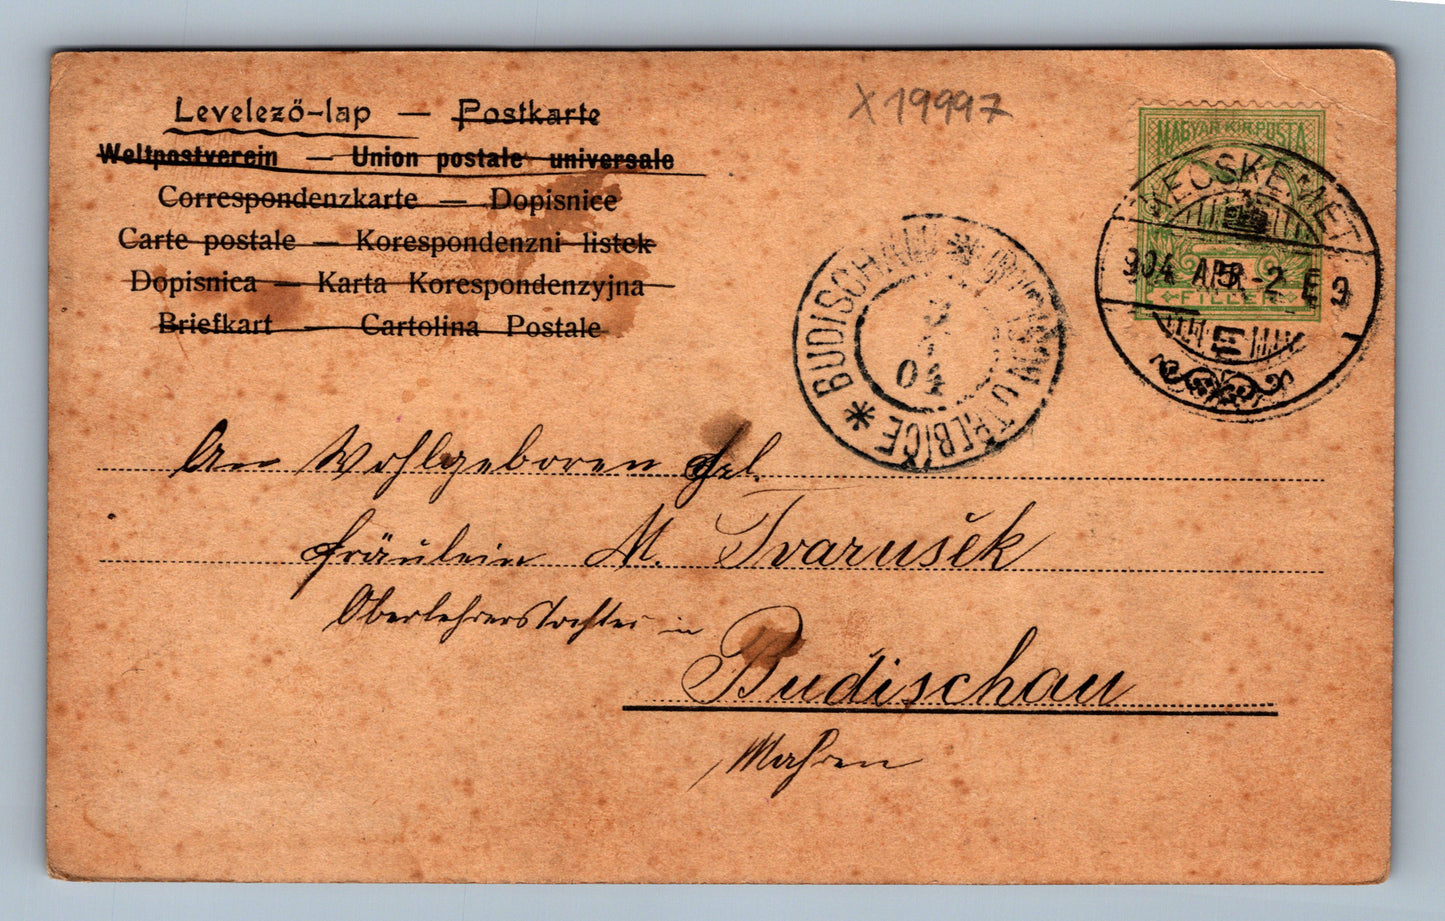 Levelező-lap — Postkarte
Weltpostverein — Union postale universale
Correspondenzkarte — Dopisnice
Carte postale — Korespondenzni listek
Dopisnica — Karta Korespondenzyjna
Briefkart — Cartolina Postale
X19997
MAGYAR KIR. POSTA
FILLÉR
KECSKEMÉT
904 APR. -2 E 9
BUDISCHAU * U TREBIČE *
3
04
An Wohlgeboren
fräulein M. Tvarušek
Oberlehrerstochter in
Budischau
Mahren